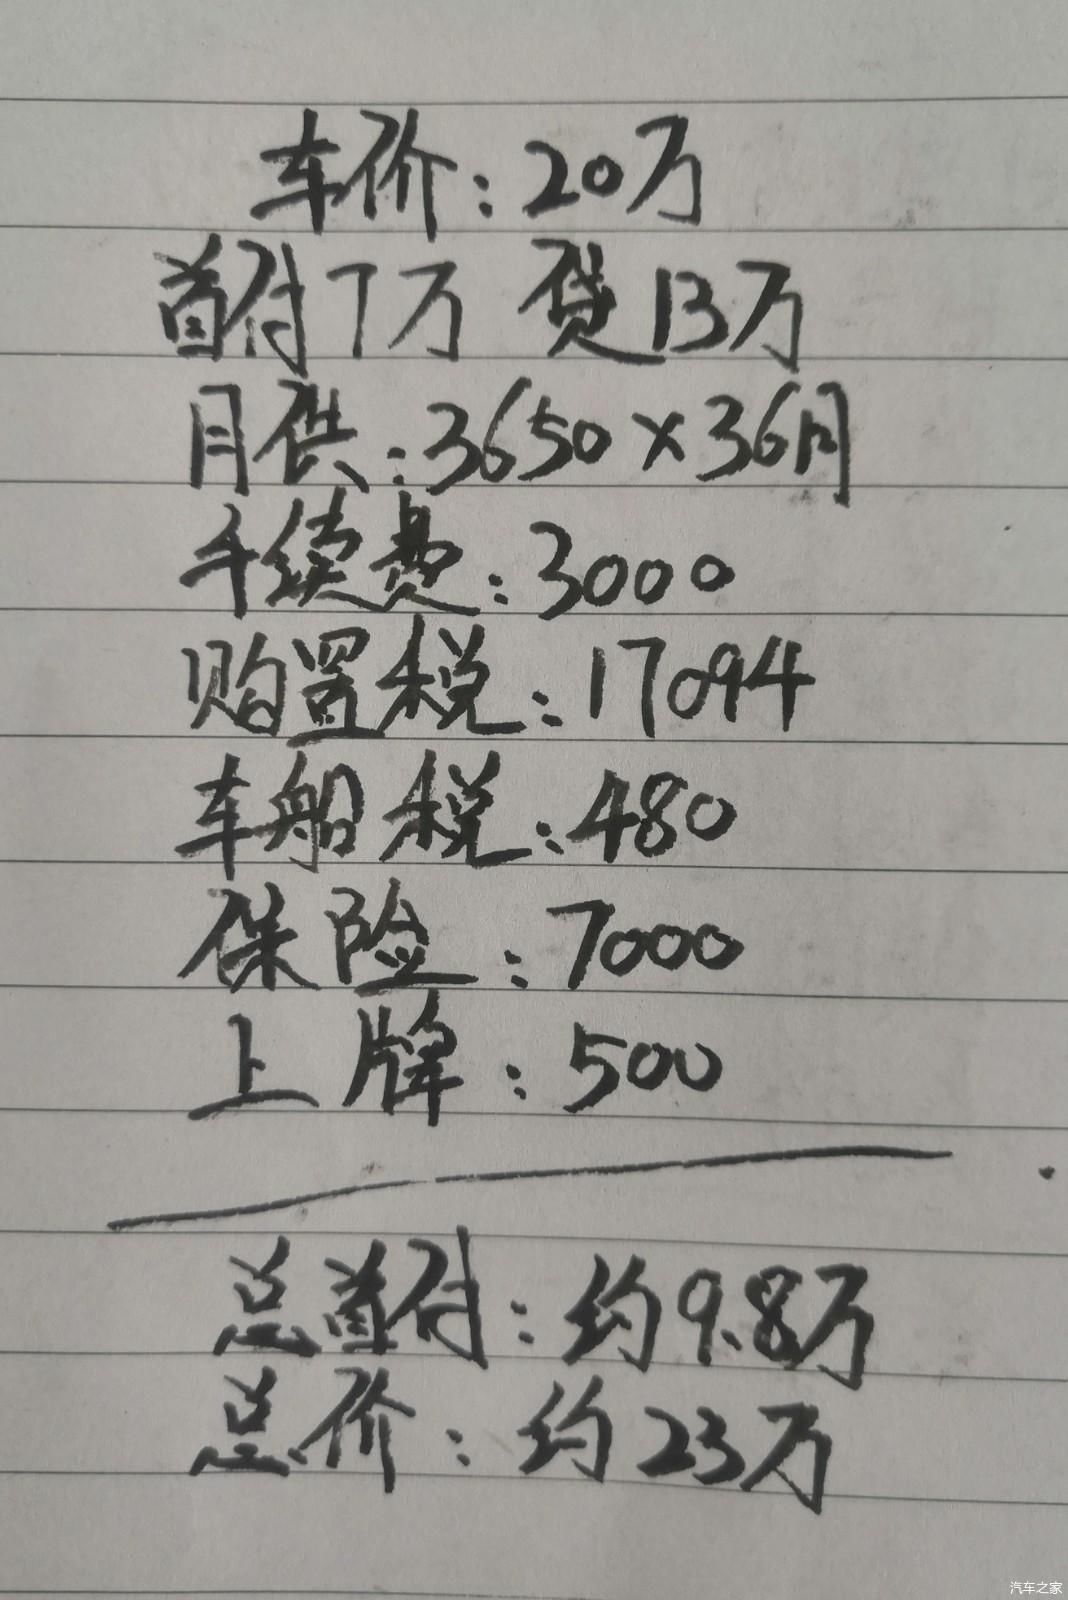 车价：20万
首付7万 贷13万
月供：3650×36月
手续费：3000
购置税：17094
车船税：480
保险：7000
上牌：500
总首付：约9.8万
总价：约23万
汽车之家